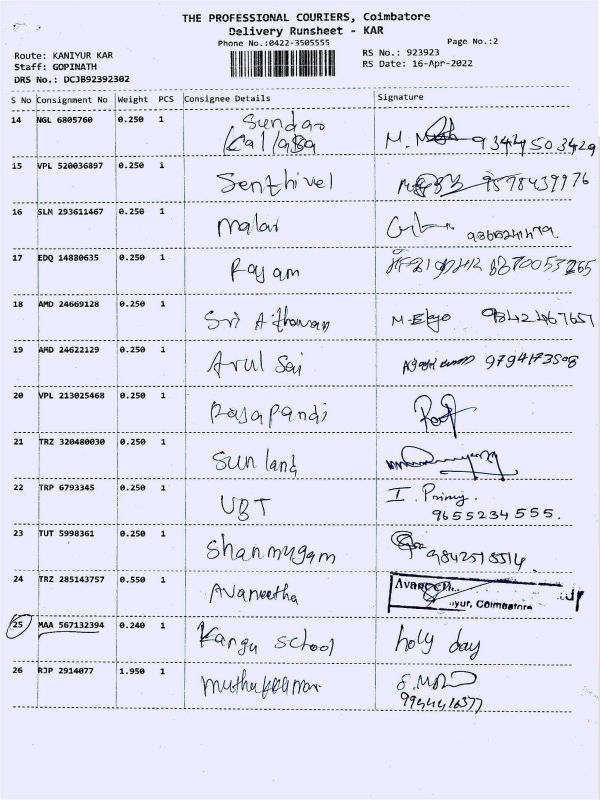 THE PROFESSIONAL COURIERS, Coimbatore
Delivery Runsheet - KAR
Phone No.:0422-3505555
Page No.:2
Route: KANIYUR KAR
RS No.: 923923
Staff: GOPINATH
RS Date: 16-Apr-2022
DRS No.: DCJB92392302
S No Consignment No Weight PCS Consignee Details Signature
14 NGL 6805760 0.250 1 Sundar
Kallasa M. 9344503429
15 VPL 520036897 0.250 1 Senthivel 9598439976
16 SLM 293611467 0.250 1 malar
17 EDQ 14880635 0.250 1 Rajam
18 AMD 24669128 0.250 1 Sri
19 AMD 24622129 0.250 1 Arul Sai 9794173508
20 VPL 213025468 0.250 1 Rajapandi
21 TRZ 320480030 0.250 1 Sun land
22 TRP 6793345 0.250 1 UBT I. Primy.
9655234555.
23 TUT 5998361 0.250 1 Shanmugam
24 TRZ 285143757 0.550 1 Avaneetha Avaneeth..
iyur, Coimbatore
25 MAA 567132394 0.240 1 Kangu School holy day
26 RJP 2914077 1.950 1 muthukumar
9944416377